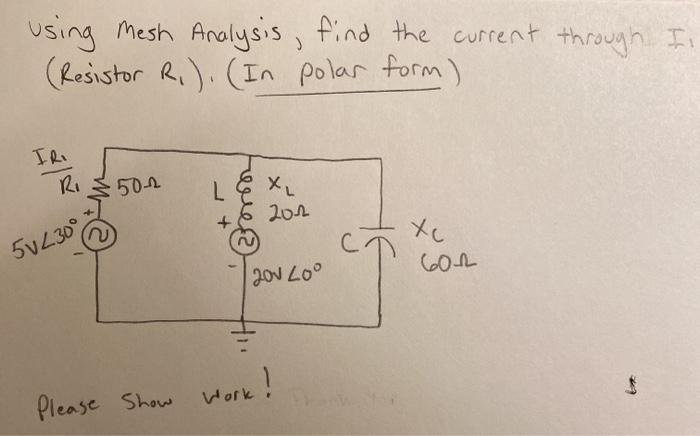 Using Mesh Analysis, find the current through I₁
(Resistor R₁). (In polar form)
IR₁
R₁ 50Ω
L XL
+ 20Ω
5V∠30° + -
C XC
60Ω
- 20V∠0°
Please Show Work!
$